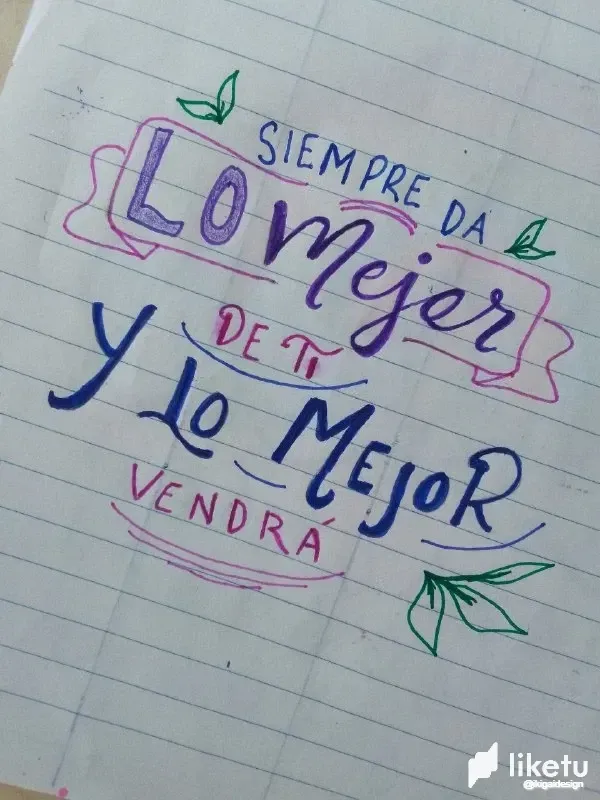 SIEMPRE DA
LO mejor
DE TI
Y LO MEJOR
VENDRÁ
liketu
@ikigaidesign